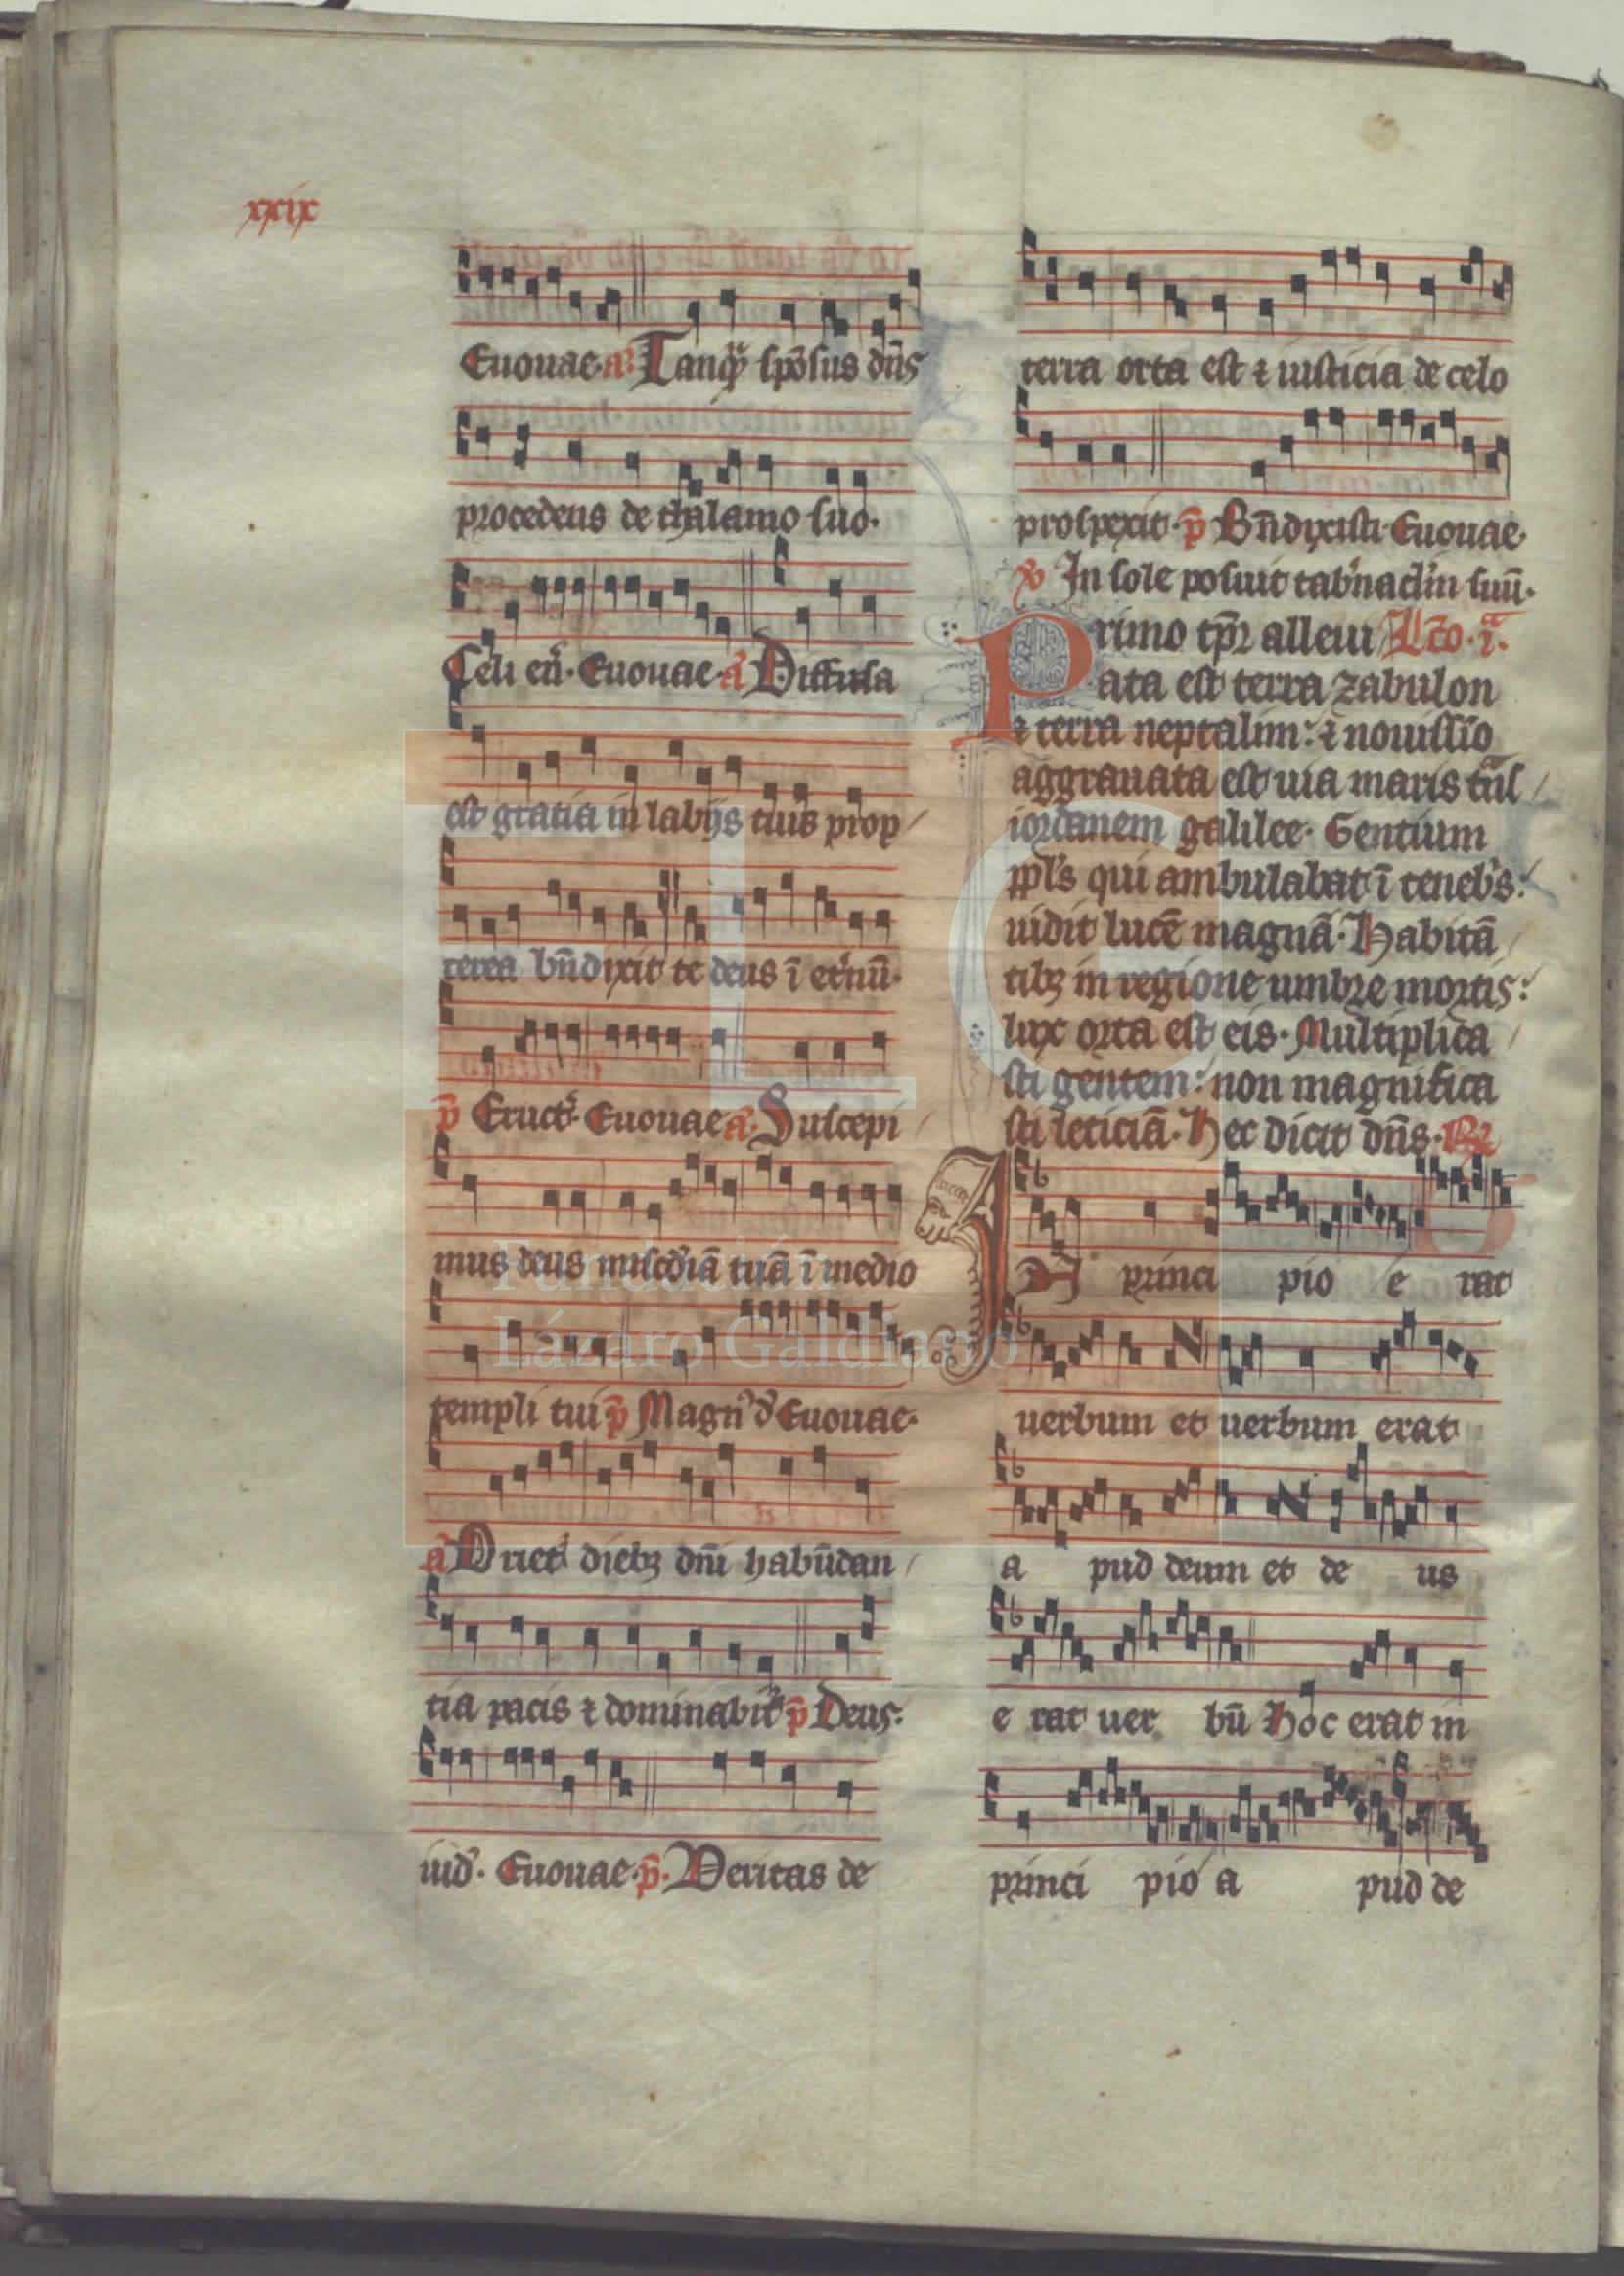 xxix
Euouae. a. Tanq̃ spõsus dñs
procedens de thalamo suo.
Celi eñ. Euouae. a. Diffusa
est gratia in labijs tuis prop/
terea bñdixit te deus ĩ et'nũ.
p̃ Eruct. Euouae a. Suscepi/
mus deus misc̃diã tuã ĩ medio
templi tui p̃ Magn' d' Euouae.
a Oriet' dieb; dñi habũdan/
tia pacis ⁊ dominabit' p̃ Deus.
iud'. Euouae. p̃. Veritas de
terra orta est ⁊ iusticia de celo
prospexit. p̃ Bñdixisti. Euouae.
℣ In sole posuit tab'nacl'm suũ.
Primo tp̃r alleui Lc̃o. i.ª
ata est terra zabulon
⁊ terra neptalim: ⁊ nouissĩo
aggrauata est uia maris tñs/
iordanem galilee. Gentium
ppl's qui ambulabat ĩ teneb's:
uidit lucẽ magnã. Habitã/
tib; in regione umbre mortis:
lux orta est eis. Multiplica/
sti gentem: non magnifica
sti leticiã. Hec dicit dñs. ℟
In princi pio e rat
uerbum et uerbum erat
a pud deum et de us
e rat uer bũ Hoc erat in
princi pio a pud de
Fundación
Lázaro Galdiano